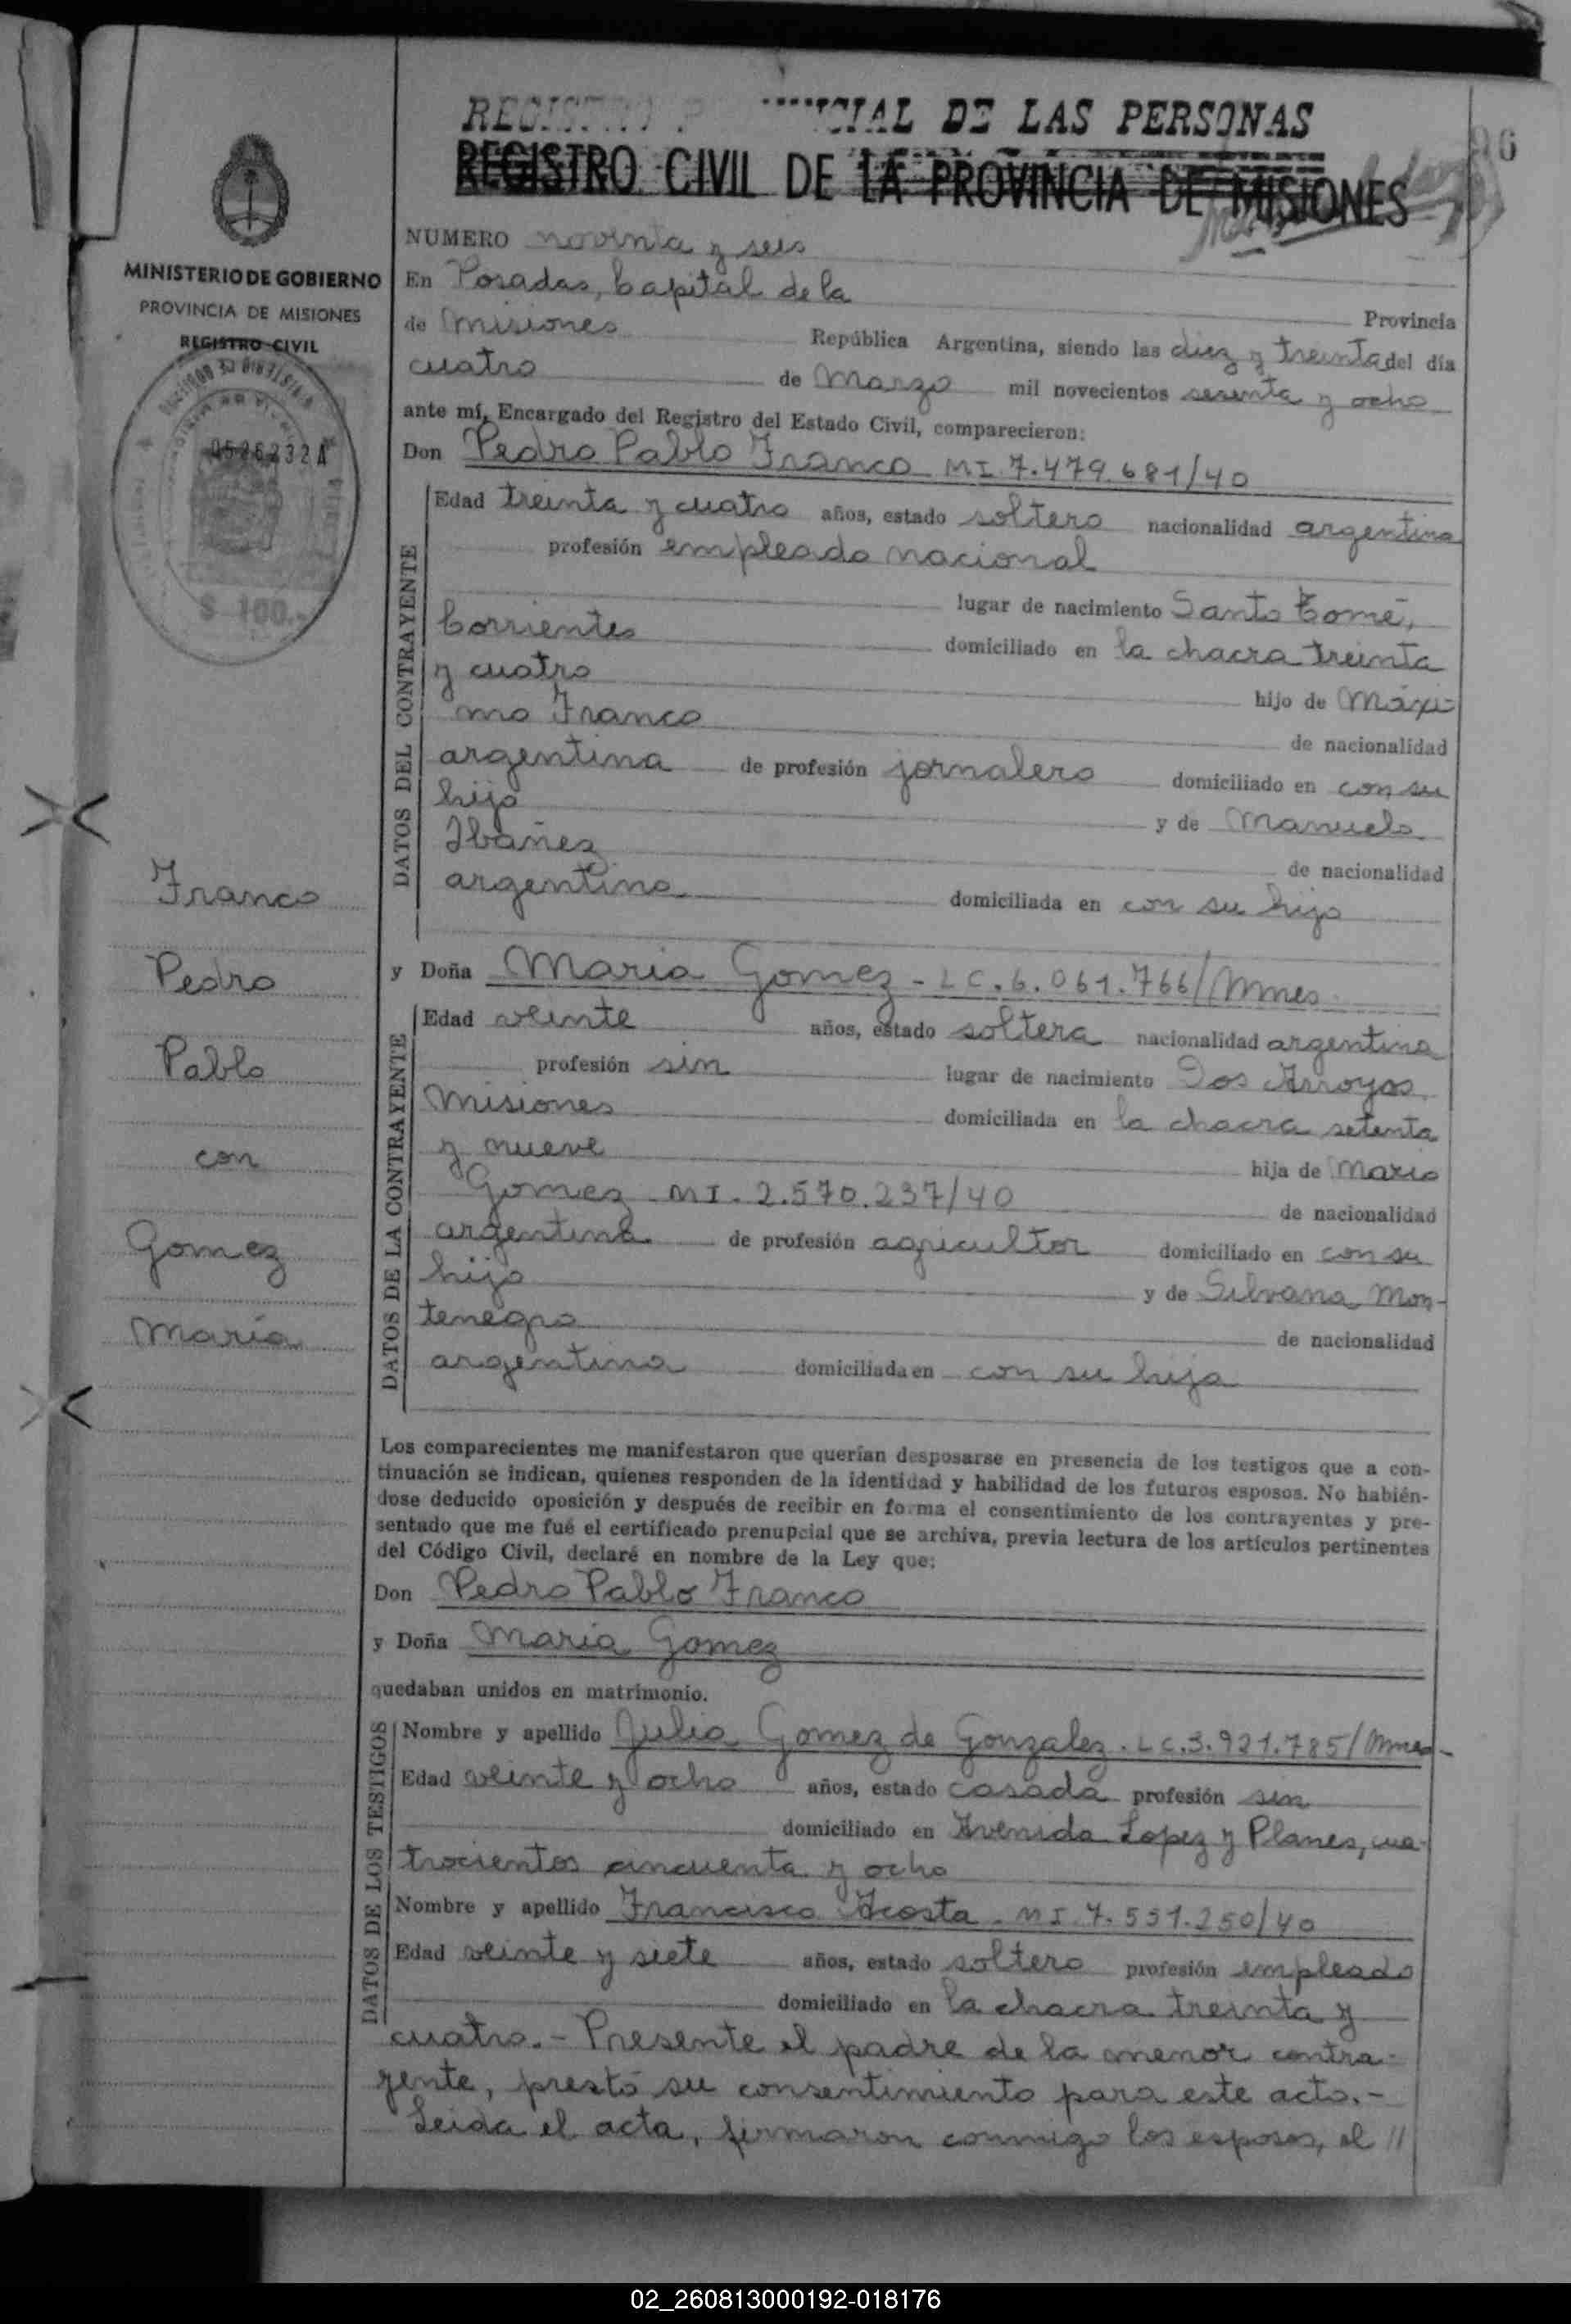 REGISTRO P   NCIAL DE LAS PERSONAS
REGISTRO CIVIL DE LA PROVINCIA DE MISIONES
96
MINISTERIO DE GOBIERNO
PROVINCIA DE MISIONES
REGISTRO CIVIL
0526232A
$ 100.-
NUMERO noventa y seis
En Posadas, Capital de la Provincia
de Misiones República Argentina, siendo las diez y treinta del día
cuatro de Marzo mil novecientos sesenta y ocho
ante mí, Encargado del Registro del Estado Civil, comparecieron:
Don Pedro Pablo Franco MI 7.479.681/40
DATOS DEL CONTRAYENTE
Edad treinta y cuatro años, estado soltero nacionalidad argentina
profesión empleado nacional
lugar de nacimiento Santo Tomé,
Corrientes domiciliado en la chacra treinta
y cuatro hijo de Máxi-
mo Franco de nacionalidad
argentina de profesión jornalero domiciliado en con su
hijo y de Manuela
Ibañez de nacionalidad
argentina domiciliada en con su hijo
Franco
Pedro
Pablo
con
Gomez
María
y Doña Maria Gomez - LC. 6.061.766/Mnes
DATOS DE LA CONTRAYENTE
Edad veinte años, estado soltera nacionalidad argentina
profesión sin lugar de nacimiento Dos Arroyos
Misiones domiciliada en la chacra setenta
y nueve hija de Mario
Gomez MI. 2.570.237/40 de nacionalidad
argentina de profesión agricultor domiciliado en con su
hija y de Silvana Mon-
tenegro de nacionalidad
argentina domiciliada en con su hija
Los comparecientes me manifestaron que querían desposarse en presencia de los testigos que a con-
tinuación se indican, quienes responden de la identidad y habilidad de los futuros esposos. No habién-
dose deducido oposición y después de recibir en forma el consentimiento de los contrayentes y pre-
sentado que me fué el certificado prenupcial que se archiva, previa lectura de los artículos pertinentes
del Código Civil, declaré en nombre de la Ley que:
Don Pedro Pablo Franco
y Doña Maria Gomez
quedaban unidos en matrimonio.
DATOS DE LOS TESTIGOS
Nombre y apellido Julia Gomez de Gonzalez. LC.3.921.785/Mnes-
Edad veinte y ocho años, estado casada profesión sin
domiciliado en Avenida Lopez y Planes, cua-
trocientos cincuenta y ocho
Nombre y apellido Francisco Acosta. MI. 7.551.250/40
Edad veinte y siete años, estado soltero profesión empleado
domiciliado en la chacra treinta y
cuatro.- Presente el padre de la menor contra-
yente, prestó su consentimiento para este acto.-
Leida el acta, firmaron conmigo los esposos, el //
02_260813000192-018176